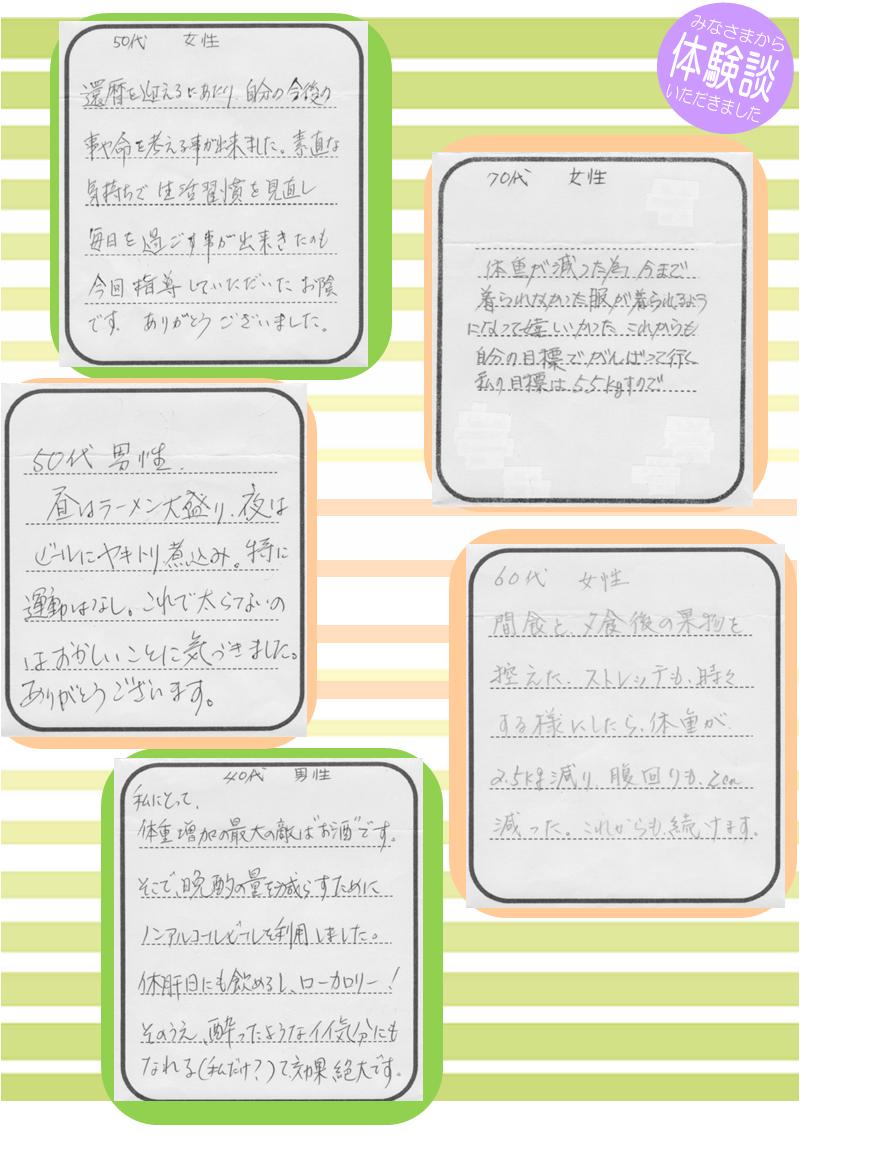 みなさまから
体験談
いただきました
50代 女性
還暦を迎えるにあたり、自分の今後の
事や命を考える事が出来ました。素直な
気持ちで 生活習慣を見直し
毎日を過ごす事が出来きたのも
今回指導していただいた お陰
です。 ありがとうございました。
70代 女性
体重が減った為、今まで
着られなかった服が着られるよう
になって嬉しいかった これからも
自分の目標でがんばって行く
私の目標は55kgすので
50代 男性.
昼はラーメン大盛り、夜は
ビールにヤキトリ、煮込み。特に
運動はなし。これで太らてないの
はおかしいことに気づきました。
ありがとうございます。
60代 女性
間食と、夕食後の果物を
控えた、ストレッチも、時々
する様にしたら、体重が
2.5kg減り、腹回りも、2cm
減った。これからも、続けます。
40代 男性
私にとって、
体重増加の最大の敵は"お酒"です。
そこで、晩酌の量を減らすために
ノンアルコールビールを利用しました。
休肝日にも飲めるし、ローカロリー!
そのうえ、酔ったようなイイ気分にも
なれる(私だけ?)て、効果絶大です。